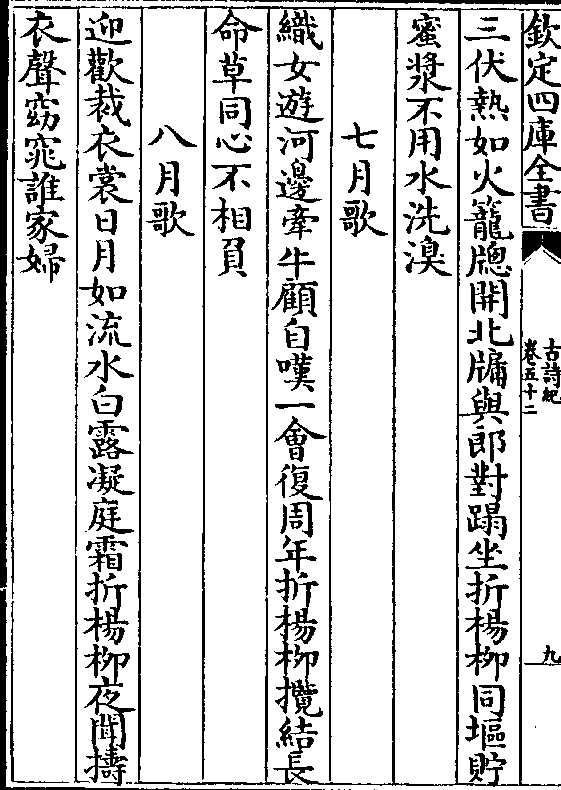 欽定四庫全書
古詩紀
卷五十二
九
三伏熱如火籠牕開北牖與郎對蹋坐折楊柳同塸貯
蜜漿不用水洗溴
七月歌
織女遊河邊牽牛顧自嘆一會復周年折楊柳攬結長
命草同心不相負
八月歌
迎歡裁衣裳日月如流水白露凝庭霜折楊柳夜聞擣
衣聲窈窕誰家婦